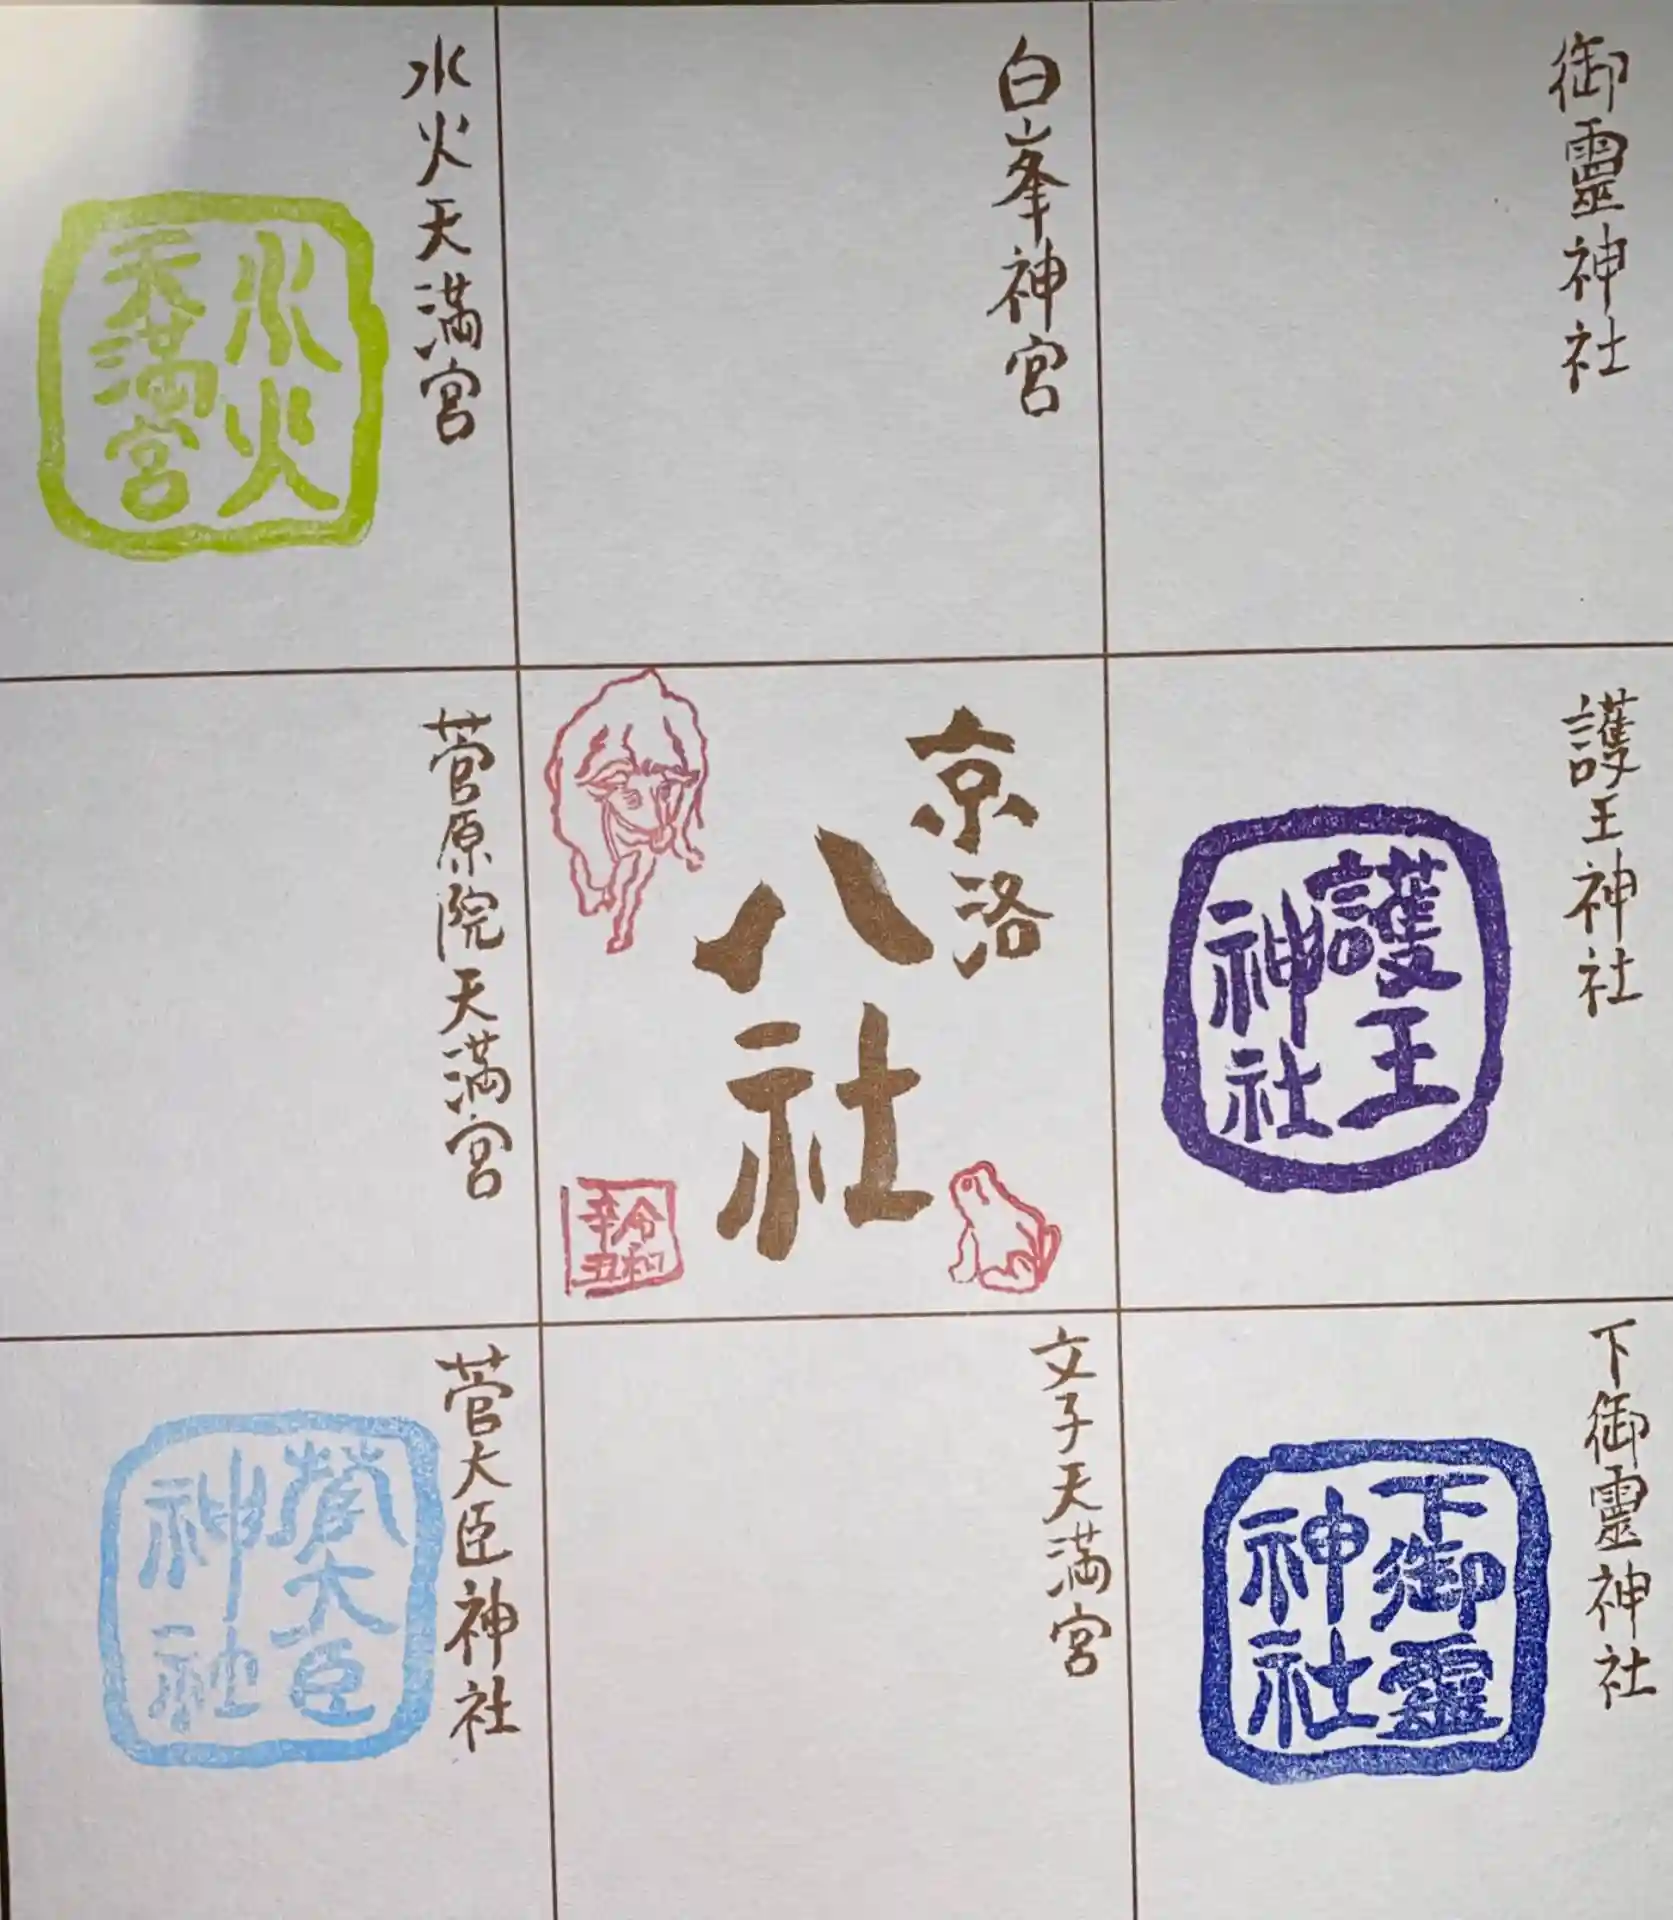 御靈神社
白峯神宮
水火天満宮
水火
天満宮
護王神社
護王
神社
京洛
八社
令和
辛丑
菅原院天満宮
下御靈神社
下御靈
神社
文子天満宮
菅大臣神社
菅大臣
神社